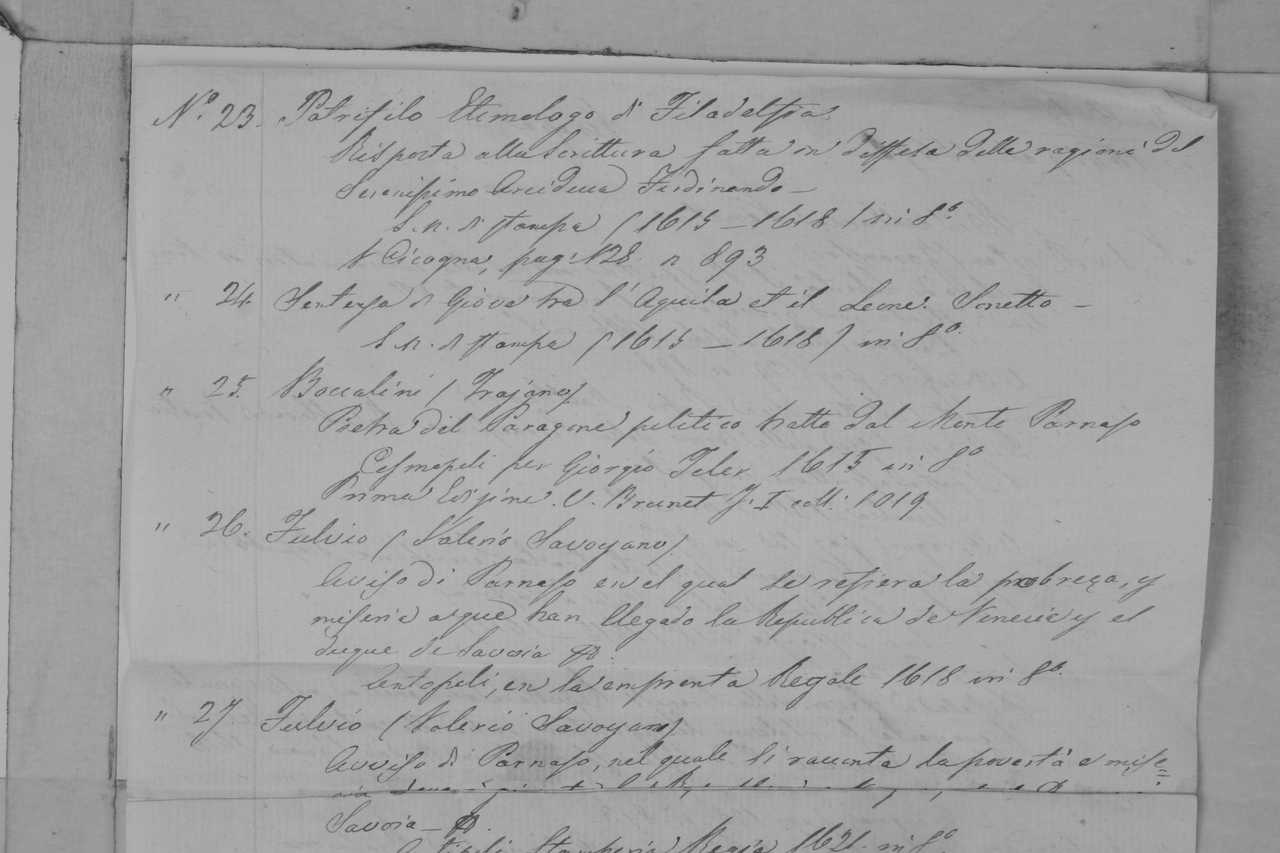 No. 23. Patrifilo Etimologo di Filadelfia.
Risposta alla scrittura fatta in diffesa delle ragioni del
Serenissimo Arciduca Ferdinando —
S. n. di stampa (1615 — 1618) in 8o.
V. Cicogna, pag: 128 n 893
" 24 Sentenza di Giove tra l'Aquila et il Leone. Sonetto —
S. n. di stampa (1615 — 1618) in 8o.
" 25. Boccalini (Trajano)
Pietra del Paragone politico tratto dal Monte Parnaso
Cosmopoli per Giorgio Teler 1615 in 8o
Prima Edizione. V. Brunet T. I coll: 1019
" 26. Fulvio (Valerio Savoyano)
Aviso di Parnaso en el qual se refiera la pobreça, y
miseria a que han llegado la Republica de Venecia y el
duque de Savoia
Antopoli, en la emprenta Regale 1618 in 8o.
" 27. Fulvio (Valerio Savoyano)
Avviso di Parnaso, nel quale si racconta la povertà e mise=
Savoia —
Stamperia Regia 1621. in 8o